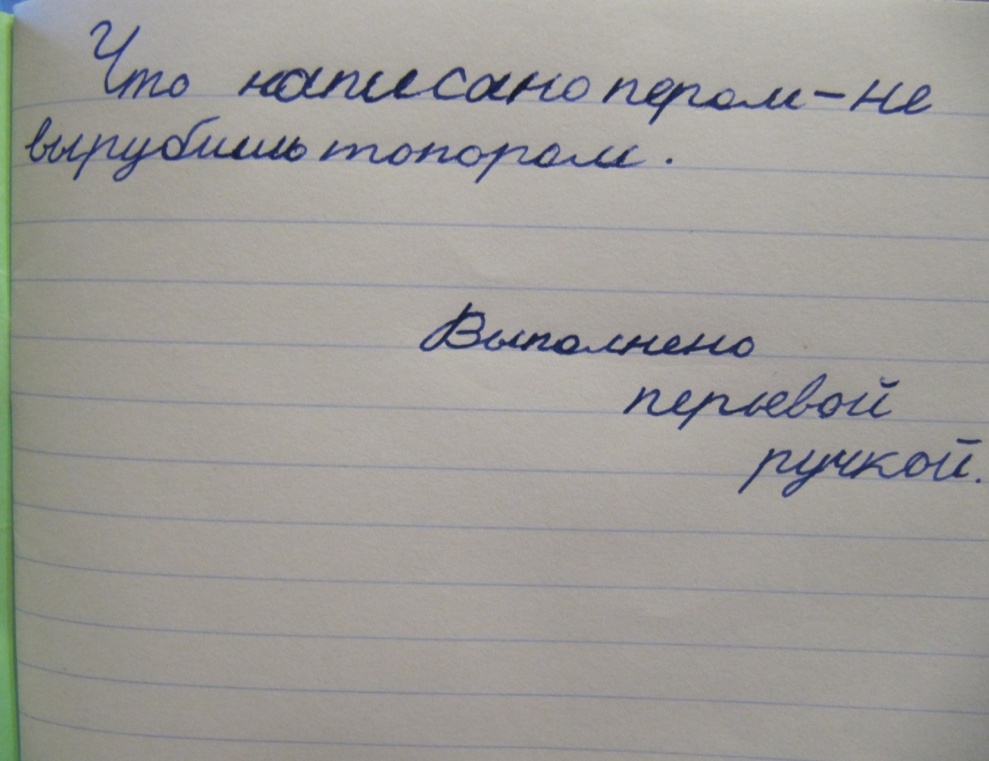 Что написано пером – не
вырубишь топором.
Выполнено
перьевой
ручкой.